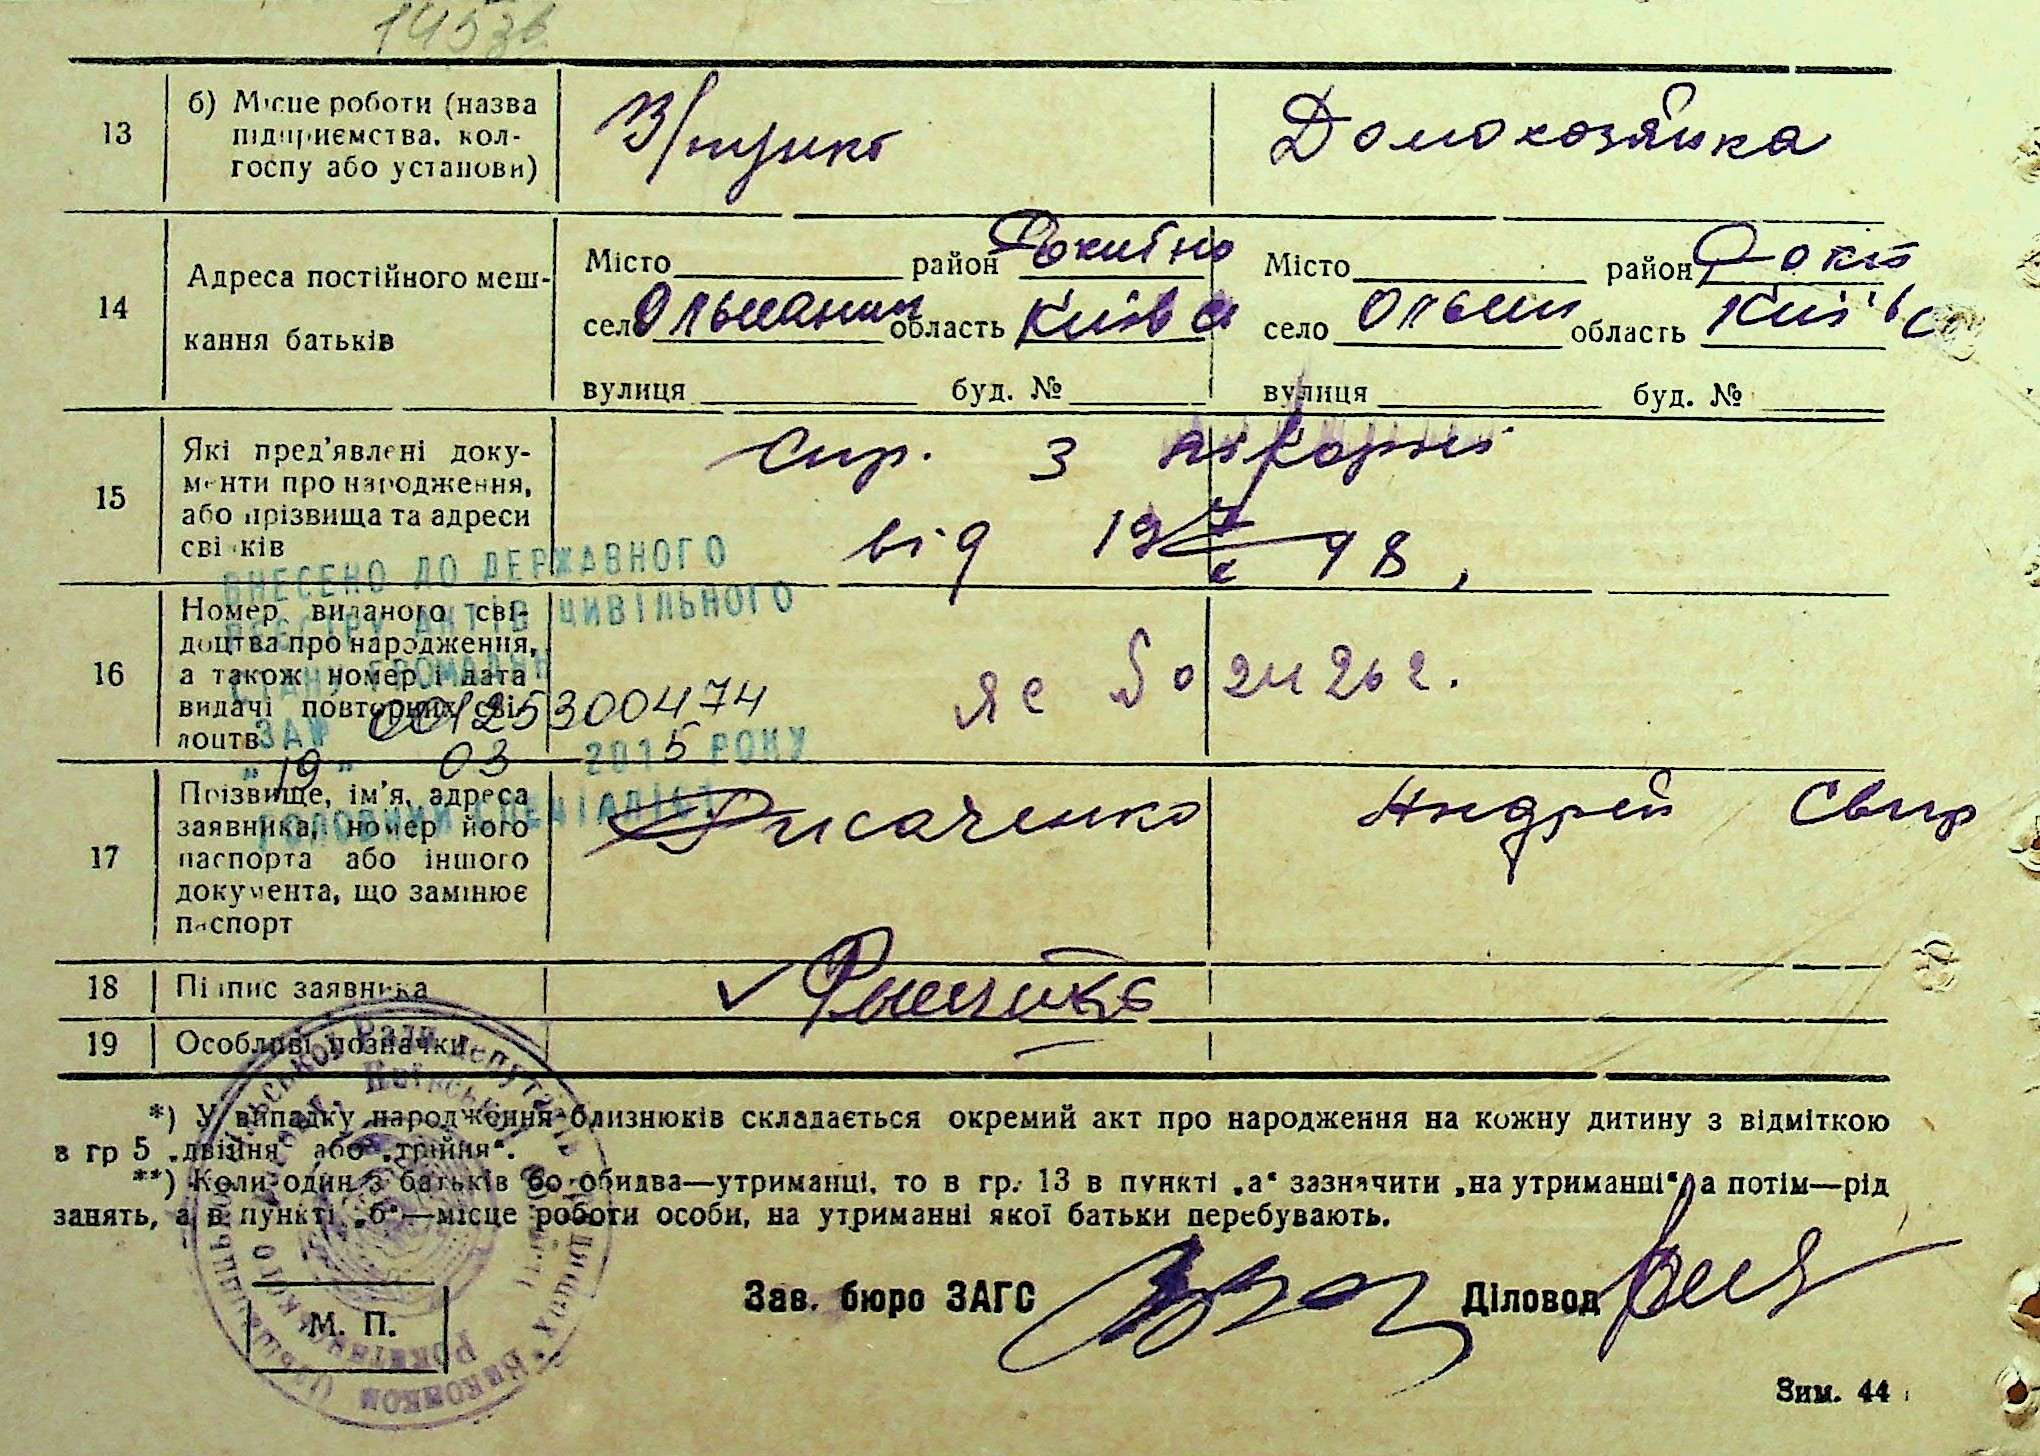 145зв
13
б) Місце роботи (назва
підприємства, кол-
госпу або установи)
З/пункт
Домохозяйка
14
Адреса постійного меш-
кання батьків
Місто район Рокитно
село Ольшаниц область Київсь
вулиця буд. №
Місто район Рокит
село Ольш область Київс
вулиця буд. №
15
Які пред'явлені доку-
менти про народження,
або прізвища та адреси
свідків
Спр. з лікарні
від 48,
ВНЕСЕНО ДО ДЕРЖАВНОГО
РЕЄСТРУ АКТІВ ЦИВІЛЬНОГО
СТАНУ ГРОМАДЯН
ЗА № 00125300474
"19" 03 2015 РОКУ
ГОЛОВНИЙ СПЕЦІАЛІСТ
16
Номер виданого сві-
доцтва про народження,
а також номер і дата
видачі повторних сві-
доцтв
17
Прізвище, ім'я, адреса
заявника, номер його
паспорта або іншого
документа, що замінює
паспорт
Андрей Свир
18
Підпис заявника
19
Особливі позначки
*) У випадку народження близнюків складається окремий акт про народження на кожну дитину з відміткою
в гр 5 „двійня“ або „трійня“.
**) Коли один з батьків бо обидва—утриманці, то в гр. 13 в пункті „а“ зазначити „на утриманці“ а потім—рід
занять, а в пункті „б“—місце роботи особи, на утриманні якої батьки перебувають.
Зав. бюро ЗАГС
Діловод
М. П.
Зим. 44